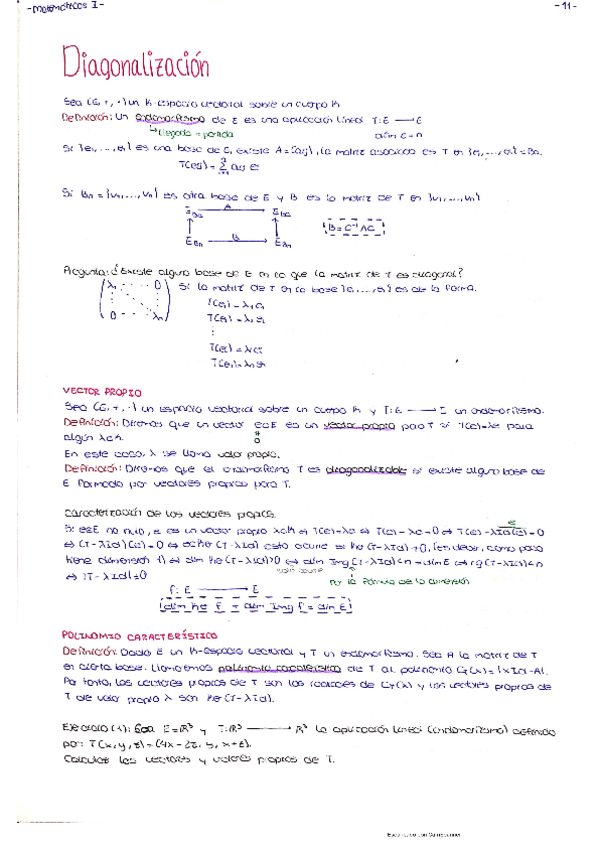 - Matemáticas I -
- 11 -
Diagonalización
Sea (E, +, ·) un K-espacio vectorial sobre un cuerpo K
Definición: Un endomorfismo de E es una aplicación lineal T: E → E
llegada = partida
dim E = n
Si {e₁, ..., eₙ} es una base de E, existe A = (aij), la matriz asociada es T en {e₁, ..., eₙ} = Bₙ.
Si Bₙ = {v₁, ..., vₙ} es otra base de E y B es la matriz de T en {v₁, ..., vₙ}
A
B
B = C⁻¹AC
Pregunta: ¿Existe alguna base de E en la que la matriz de T es diagonal?
Si la matriz de T en la base {e₁, ..., eₙ} es de la forma.
T(e₁) = λ₁e₁
VECTOR PROPIO
Sea (E, +, ·) un espacio vectorial sobre un cuerpo K y T: E → E un endomorfismo.
Definición: Diremos que un vector e∈E es un vector propio para T si T(e) = λe para
algún λ∈K.
En este caso, λ se llama valor propio.
Definición: Diremos que el endomorfismo T es diagonalizable si existe alguna base de
E formada por vectores propios para T.
Caracterización de los vectores propios.
tiene dimensión
Por la fórmula de la dimensión
f: E → E
dim Ke f + dim Img f = dim E
POLINOMIO CARACTERÍSTICO
Definición: Dado E un K-Espacio vectorial y T un endomorfismo. Sea A la matriz de T
en cierta base. Llamaremos polinomio característico de T al polinomio C_T(x) = |xId - A|.
Por tanto, los vectores propios de T son las raíces de C_T(x) y los vectores propios de
T de valor propio λ son Ke (T - λId).
Ejercicio (1): Sea E = ℝ³ y T: ℝ³ → ℝ³ la aplicación lineal (endomorfismo) definida
por: T(x, y, z) = (4x - 2z, y, x + z).
Calcular los vectores y valores propios de T.
Escaneado con CamScanner